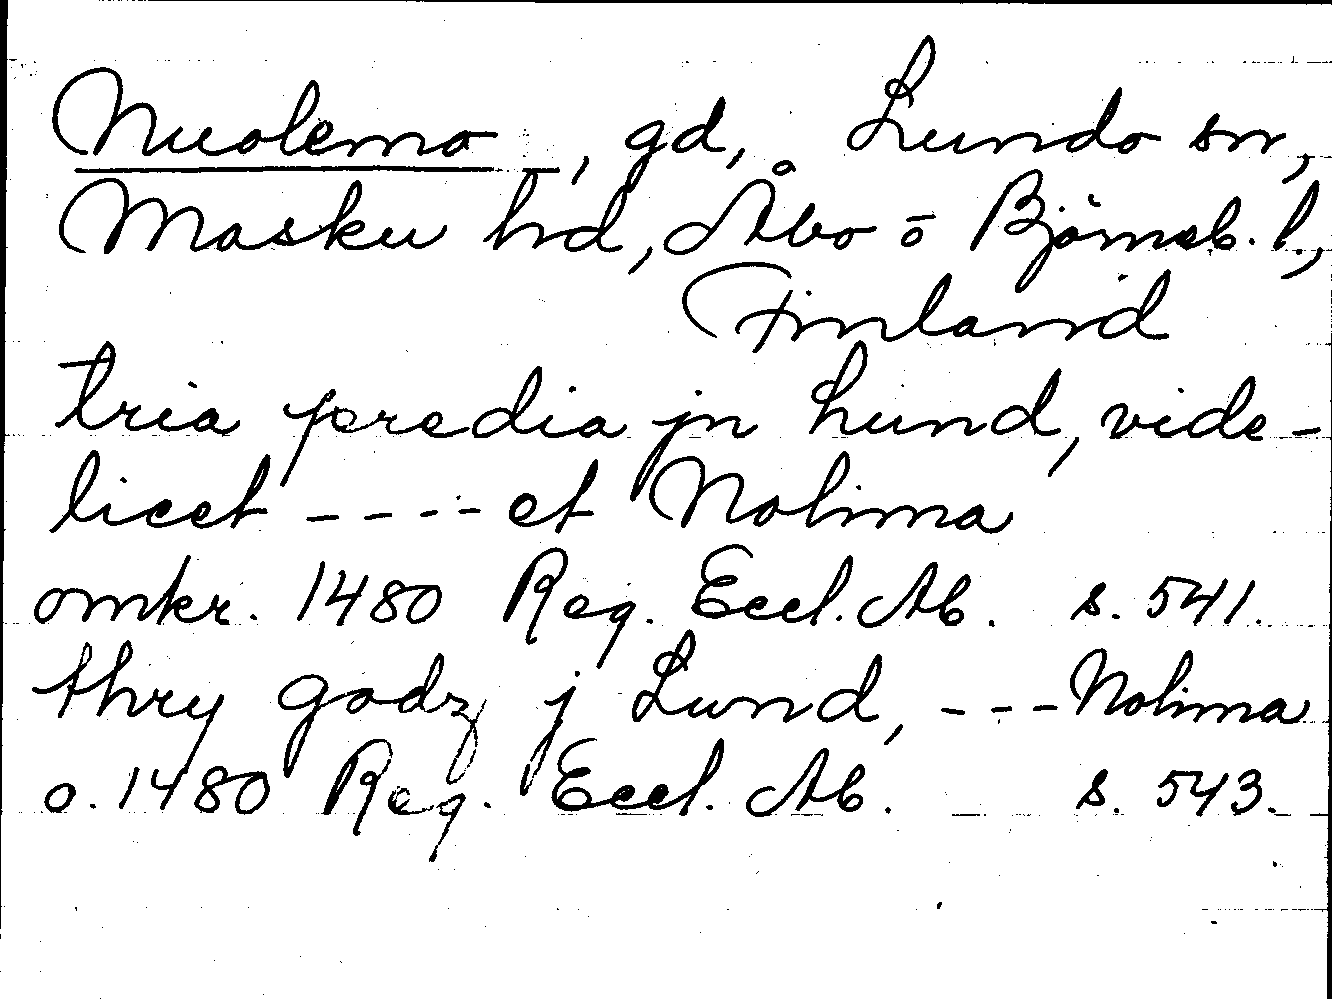 Nuolemo, gd, Lundo sn,
Masku hd, Åbo o Björneb. l.,
Finland
tria predia jn Lund, vide-
licet ---- et Nolima
omkr. 1480 Reg. Eccl. Ab. s. 541.
thry godz j Lund, --- Nolima
o. 1480 Reg. Eccl. Ab. s. 543.